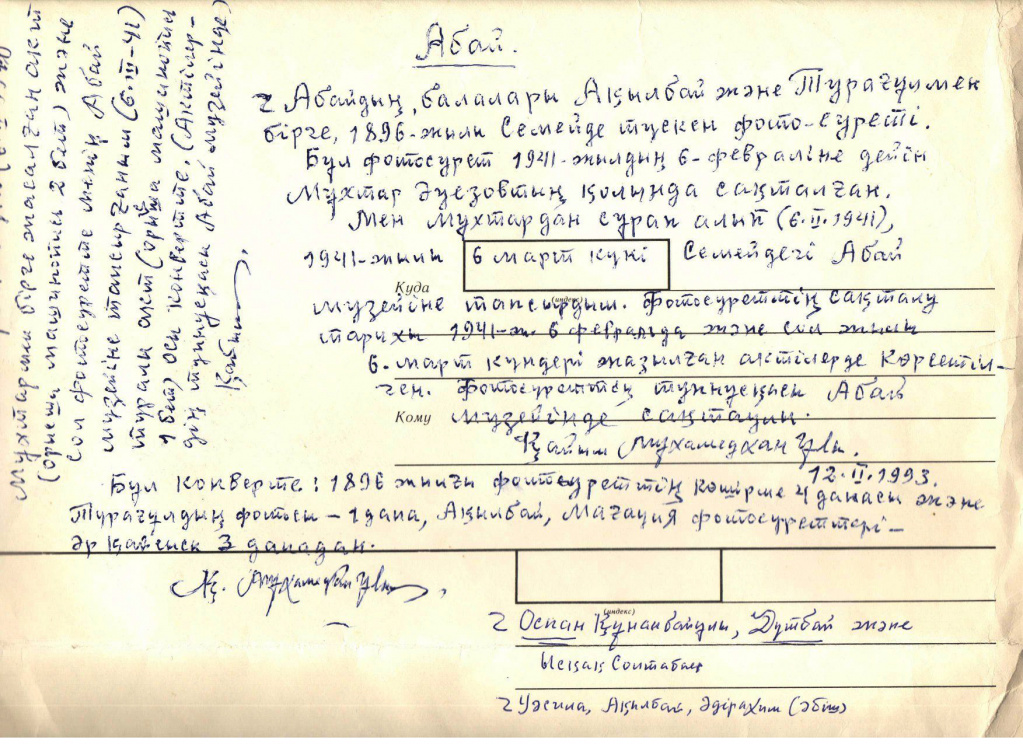 Абай.
Абайдың, балалары Ақылбай және Тұрағұлмен
бірге, 1896-жылы Семейде түскен фото-суреті.
Бұл фотосурет 1941-жылдың 6-февраліне дейін
Мұхтар Әуезовтың қолында сақталған.
Мен Мұхтардан сұрап алып (6.II.1941),
1941-жылы 6 март күні Семейдегі Абай
Куда
(индекс)
музейіне тапсырдым. Фотосуреттің сақталу
тарихы 1941-ж. 6 февральда және сол жылы
6-март күндері жазылған актілерде көрсетіл-
ген. Фотосуреттің түпнұсқасы Абай
Кому
музейінде сақтаулы.
Қайым Мұхамедханұлы.
12.II.1993.
Бұл конверте: 1896 жылғы фотосуреттің көшірме 4 данасы және
Тұрағұлдың фотосы – 1 дана, Ақылбай, Мағауия фотосуреттері –
әрқайсысы 3 данадан.
Қ. Мұхамедханұлы
(индекс)
Оспан Құнанбайұлы, Дутбай және
Ысқақ
Ақылбай, Әдірахим (Әбіш)
Мұхтармен бірге жасалған акт
(орысша машинопись 2 бет) және
сол фотосуретте менің Абай
музейіне тапсырғаным (6.III-41)
туралы акт (орысша машинопись
1 бет) осы конвертте. (Актілер-
дің түпнұсқасы Абай музейінде)
Қайым